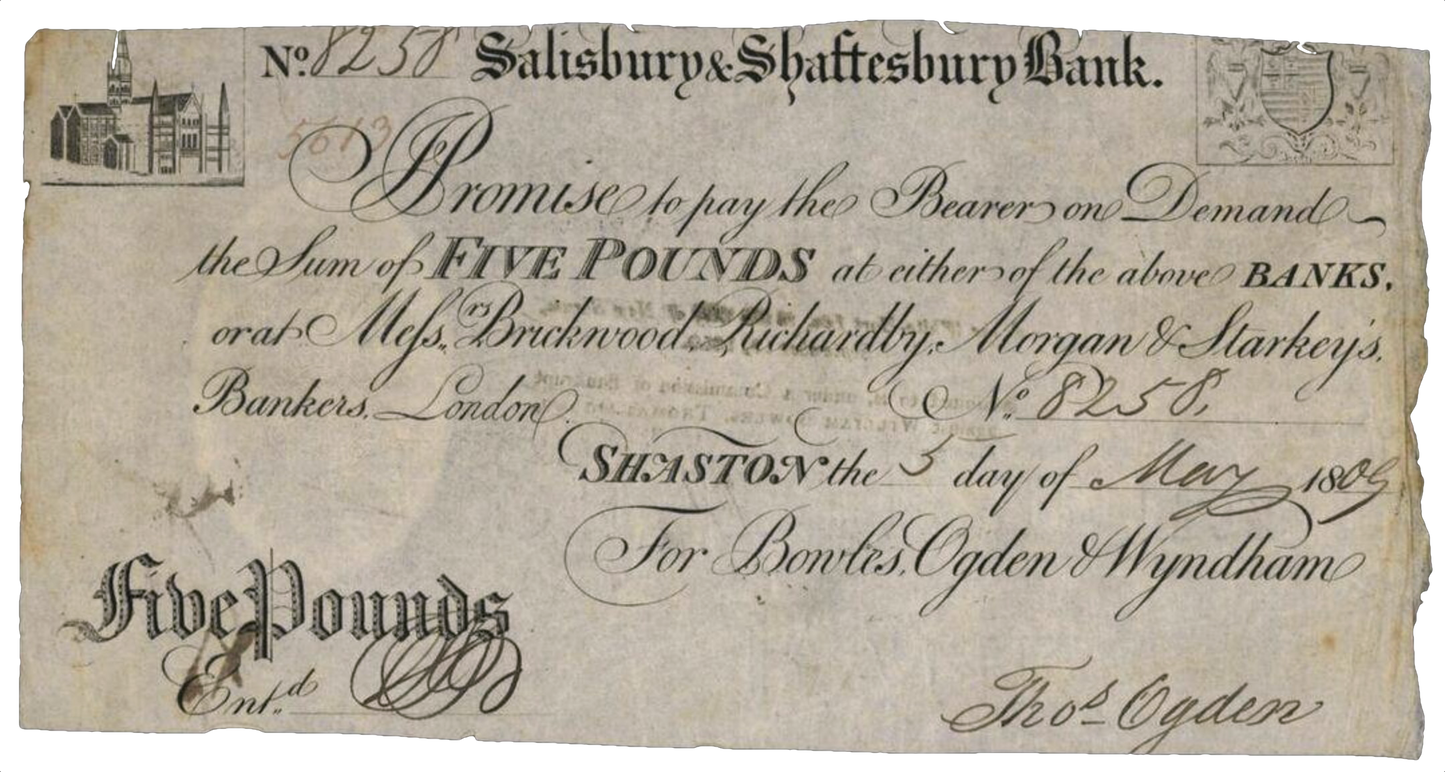 No. 8258 Salisbury & Shaftesbury Bank.
5613
I Promise to pay the Bearer on Demand
the Sum of FIVE POUNDS at either of the above BANKS,
or at Mess.rs Brickwood, Richardby, Morgan & Starkey's,
Bankers, London. No. 8258.
SHASTON the 5 day of May 1809
For Bowles, Ogden & Wyndham
Five Pounds
Ent.d
Thos. Ogden